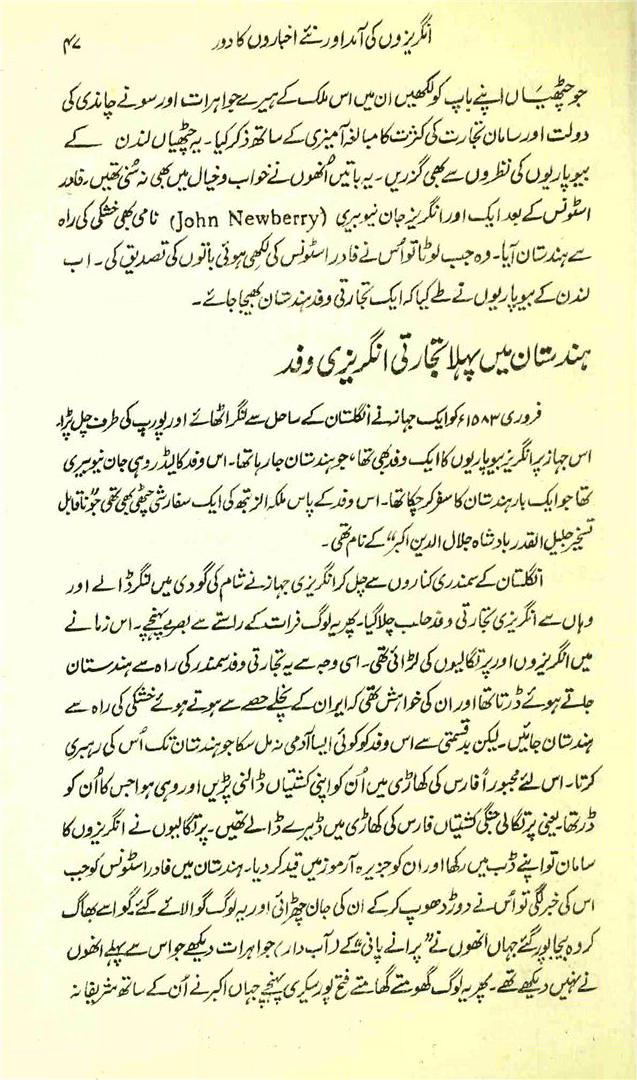 انگریزوں کی آمد اور نئے اخباروں کا دور
۴۷
جو چٹھیاں اپنے باپ کو لکھیں ان میں اس ملک کے ہیرے جواہرات اور سونے چاندی کی
دولت اور سامان تجارت کی کثرت کا مبالغہ آمیزی کے ساتھ ذکر کیا۔ یہ چٹھیاں لندن کے
بیوپاریوں کی نظروں سے بھی گزریں۔ یہ باتیں اُنھوں نے خواب و خیال میں بھی نہ سُنی تھیں۔ فادر
اسٹونس کے بعد ایک اور انگریز جان نیوبیری (John Newberry) نامی بھی خشکی کی راہ
سے ہندستان آیا۔ وہ جب لوٹا تو اُس نے فادر اسٹونس کی لکھی ہوئی باتوں کی تصدیق کی۔ اب
لندن کے بیوپاریوں نے طے کیا کہ ایک تجارتی وفد ہندستان بھیجا جائے۔
ہندستان میں پہلا تجارتی انگریزی وفد
فروری ۱۵۸۳ء کو ایک جہاز نے انگلستان کے ساحل سے لنگر اٹھائے اور پورپ کی طرف چل پڑا۔
اس جہاز پر انگریز بیوپاریوں کا ایک وفد بھی تھا، جو ہندستان جا رہا تھا۔ اس وفد کا لیڈر وہی جان نیوبیری
تھا جو ایک بار ہندستان کا سفر کر چکا تھا۔ اس وفد کے پاس ملکہ الزبتھ کی ایک سفارشی چٹھی بھی تھی جو ”ناقابل
تسخیر جلیل القدر بادشاہ جلال الدین اکبر“ کے نام تھی۔
انگلستان کے سمندری کناروں سے چل کر انگریزی جہاز نے شام کی گودی میں لنگر ڈالے اور
وہاں سے انگریزی تجارتی وفد حلب چلا گیا۔ پھر یہ لوگ فرات کے راستے سے بصرے پہنچے۔ اس زمانے
میں انگریزوں اور پرتگالیوں کی لڑائی تھی۔ اسی وجہ سے یہ تجارتی وفد سمندر کی راہ سے ہندستان
جاتے ہوئے ڈرتا تھا اور ان کی خواہش تھی کہ ایران کے نچلے حصے سے ہوتے ہوئے خشکی کی راہ سے
ہندستان جائیں۔ لیکن بدقسمتی سے اس وفد کو کوئی ایسا آدمی نہ مل سکا جو ہندستان تک اُس کی رہبری
کرتا۔ اس لئے مجبوراً فارس کی کھاڑی میں اُن کو اپنی کشتیاں ڈالنی پڑیں اور وہی ہوا جس کا اُن کو
ڈر تھا۔ یعنی پرتگالی جنگی کشتیاں فارس کی کھاڑی میں ڈیرے ڈالے تھیں۔ پرتگالیوں نے انگریزوں کا
سامان تو اپنے ڈب میں رکھا اور ان کو جزیرہ آرموز میں قید کر دیا۔ ہندستان میں فادر اسٹونس کو جب
اس کی خبر لگی تو اُس نے دوڑ دھوپ کر کے ان کی جان چھڑائی اور یہ لوگ گوا لائے گئے۔ گوا سے بھاگ
کر وہ بیجاپور گئے جہاں انھوں نے ”پرانے پانی“ کے (آب دار) جواہرات دیکھے جو اس سے پہلے انھوں
نے نہیں دیکھے تھے۔ پھر یہ لوگ گھومتے گھامتے فتح پور سیکری پہنچے جہاں اکبر نے اُن کے ساتھ شریفانہ